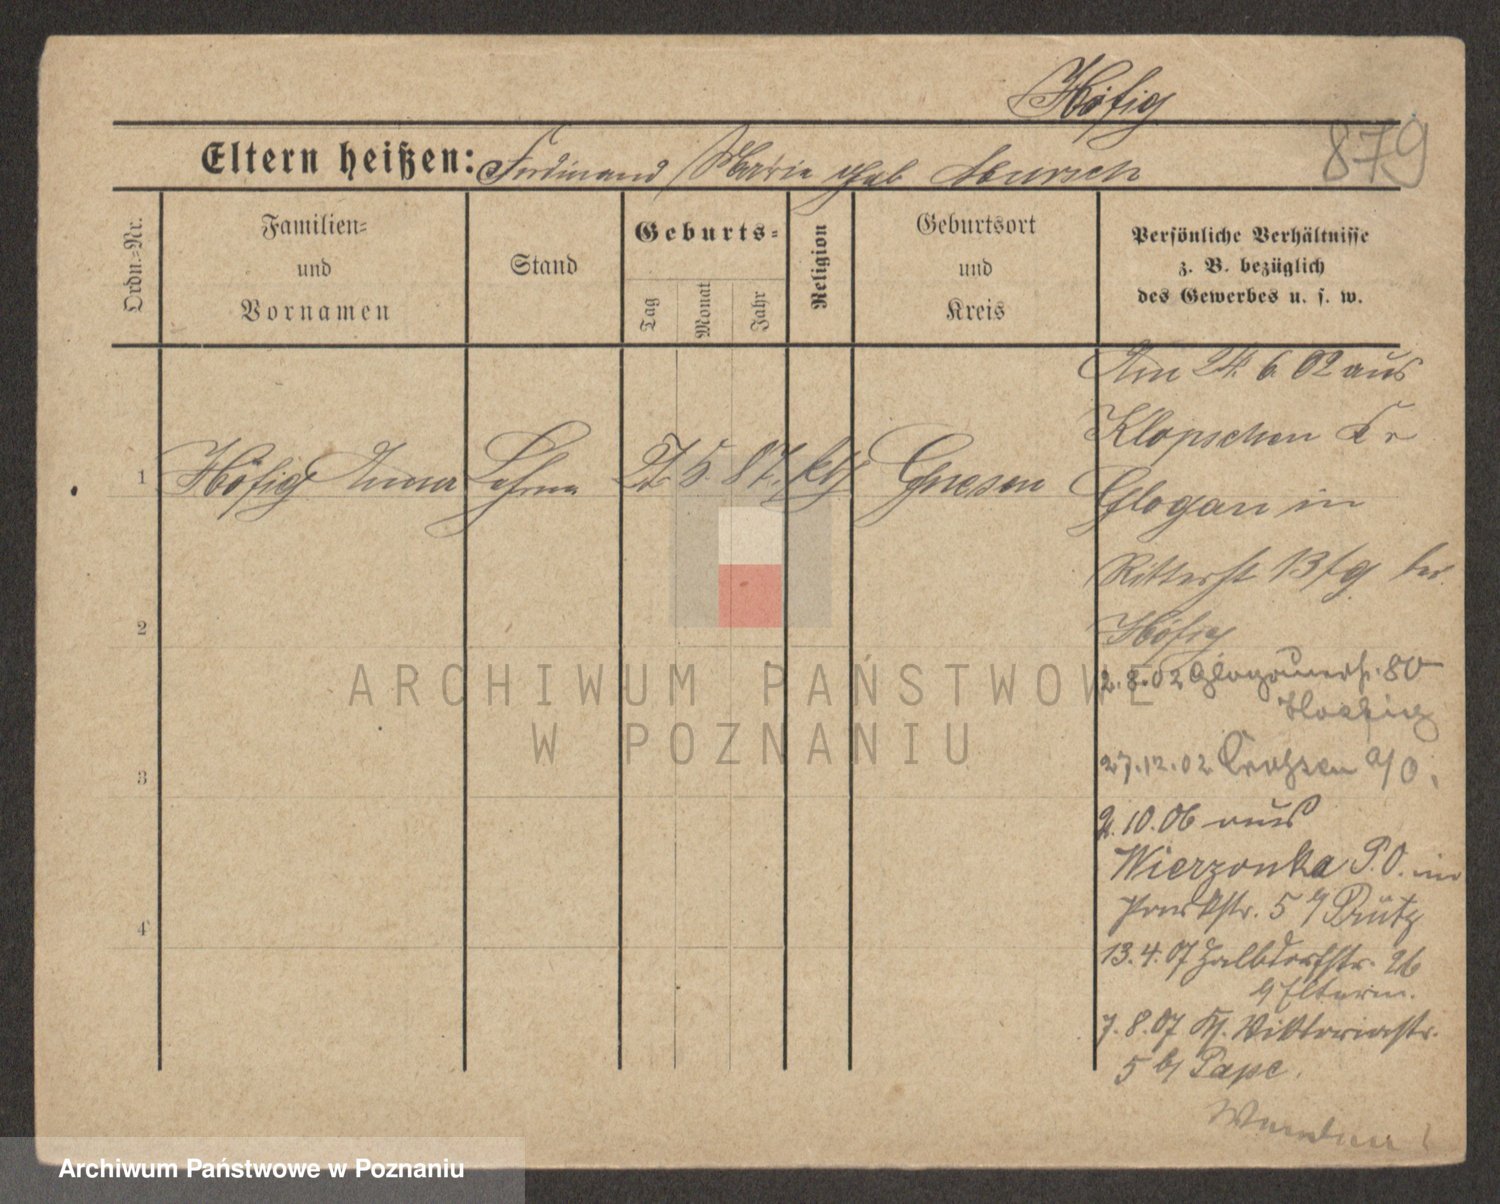 Höfig
879
Eltern heißen: Ferdinand / Marie geb
Ordn.=Nr.
Familien=
und
Vornamen
Stand
Geburts=
Tag
Monat
Jahr
Religion
Geburtsort
und
Kreis
Persönliche Verhältnisse
z. B. bezüglich
des Gewerbes u. s. w.
1
Höfig Anna
2. 5. 87.
kth
Gnesen
Am 24. 6. 02 aus
Klopschen Kr
Glogau in
Ritterstr 13 bei
Höfig
2. 8. 02 Glogauerstr. 80
27. 12. 02 a/O.
2. 10. 06 aus
Wierzonka P.O. in
Parkstr. 5 b/ Prütz
13. 4. 07 Halbdorfstr. 26
b/ Eltern.
7. 8. 07 Kl. Viktoriastr.
5 b/ Pape.
2
3
4
ARCHIWUM PAŃSTWOWE
W POZNANIU
Archiwum Państwowe w Poznaniu